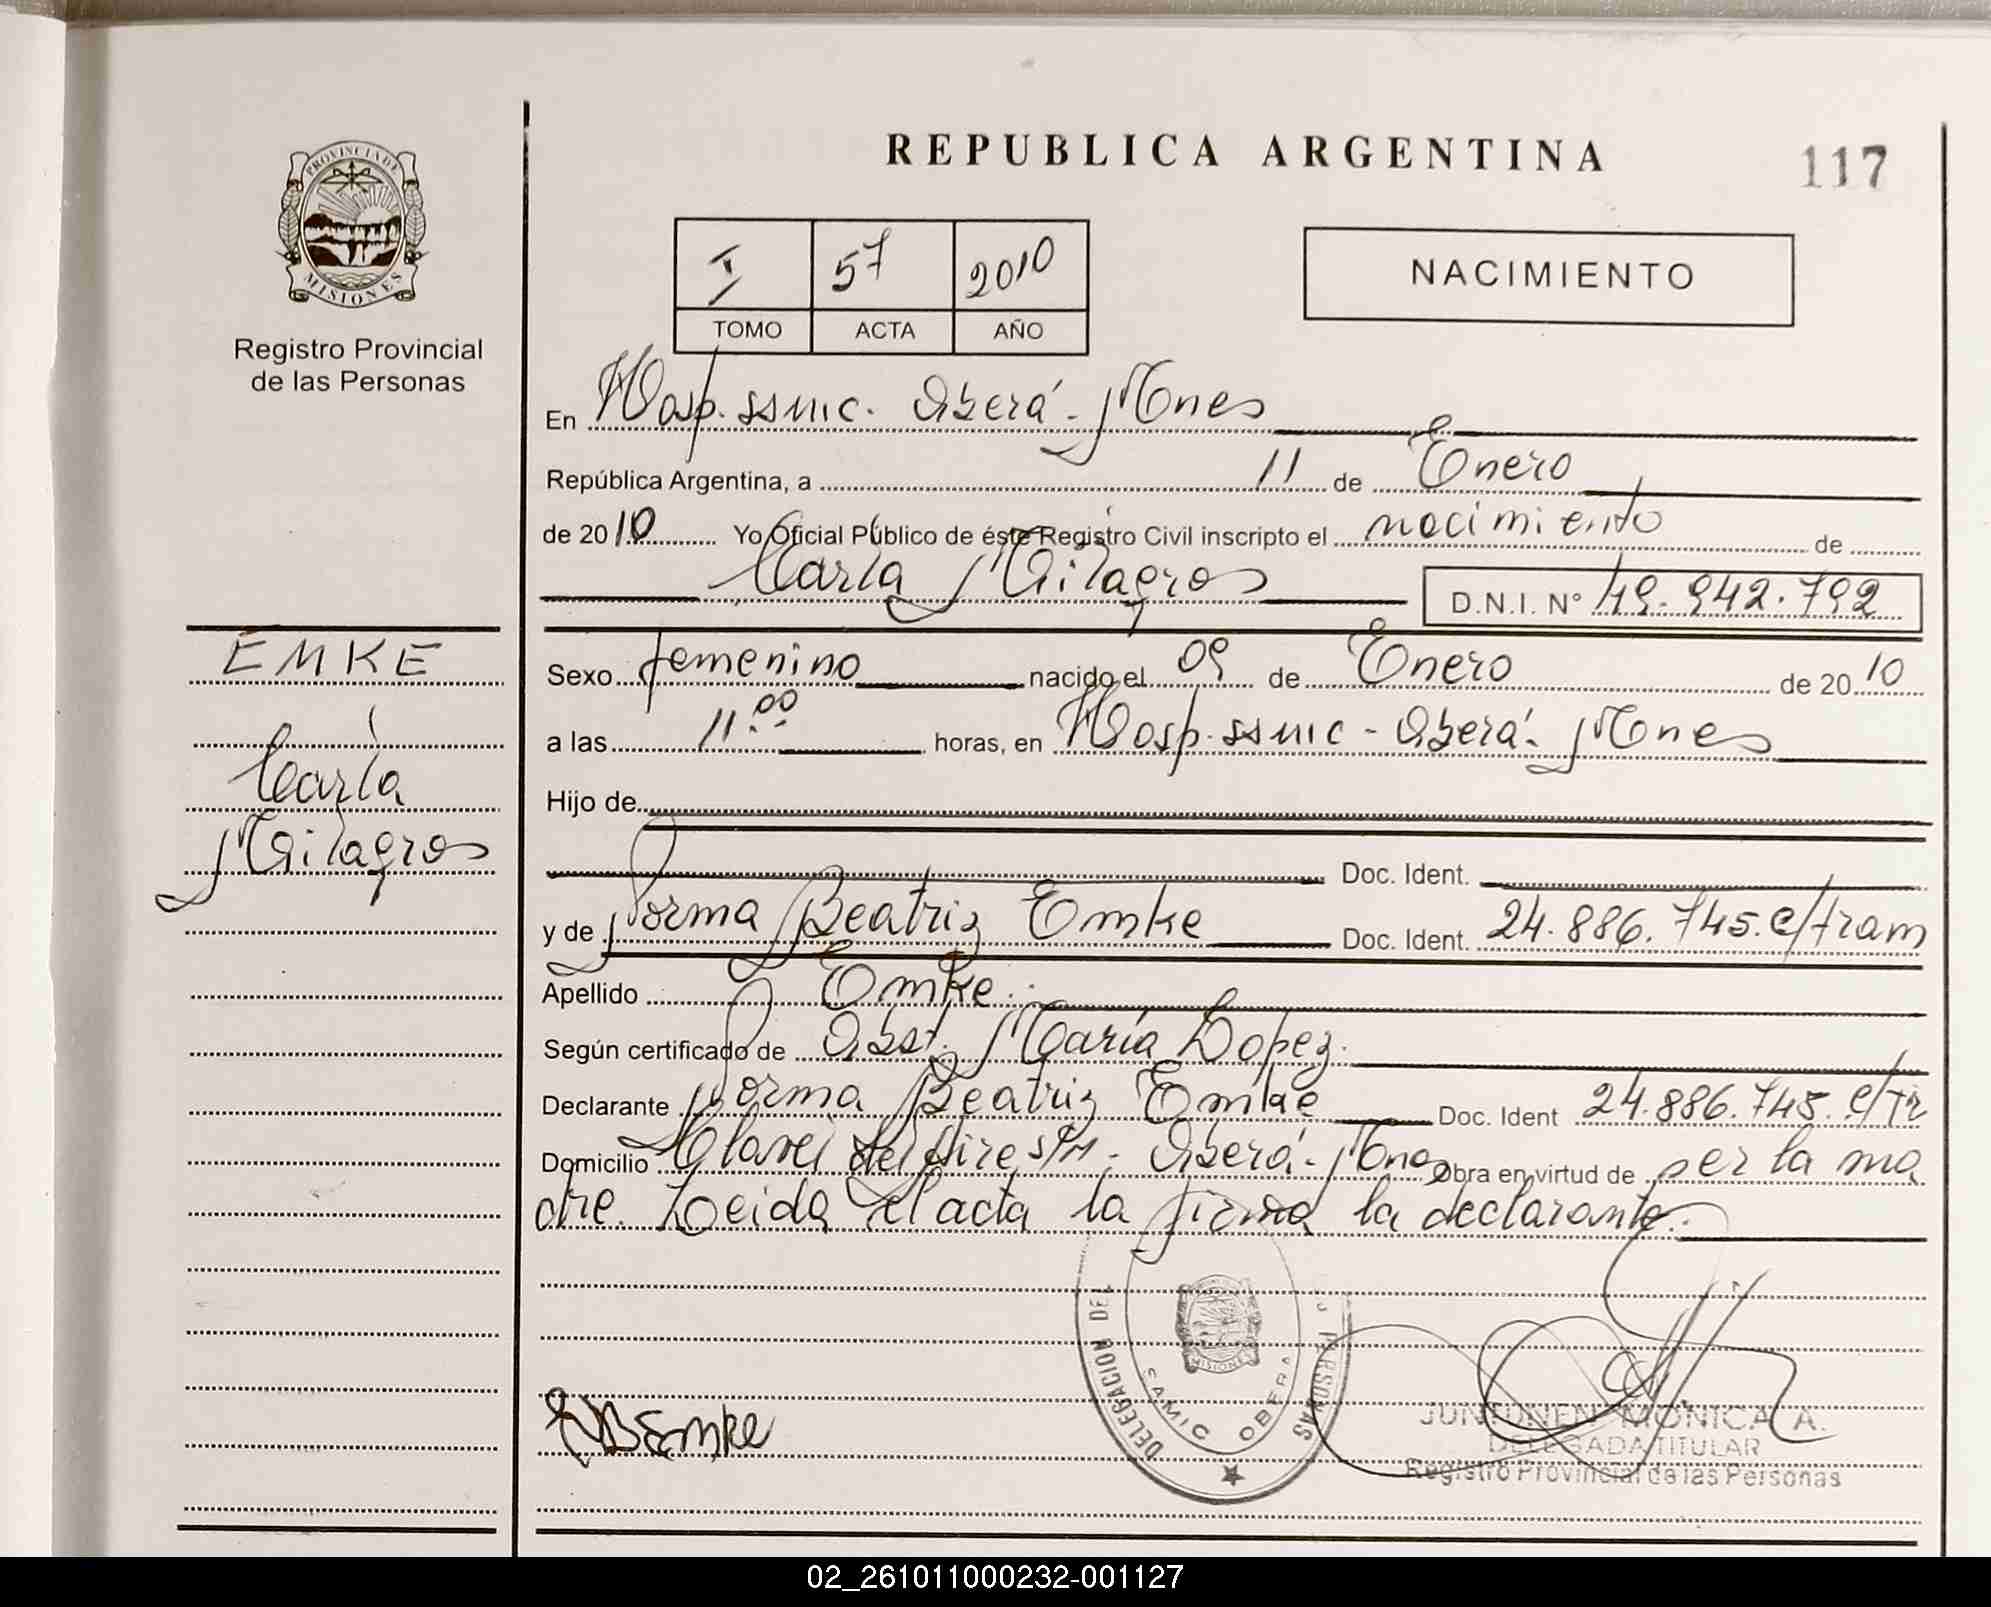 REPUBLICA ARGENTINA
117
PROVINCIA DE
MISIONES
Registro Provincial
de las Personas
I 57 2010
TOMO ACTA AÑO
NACIMIENTO
En Hosp. ssmic. Oberá - Mnes
República Argentina, a 11 de Enero
de 2010 Yo Oficial Público de éste Registro Civil inscripto el nacimiento de
Carla Milagros D.N.I. N° 49.942.792
EMKE
Carla
Milagros
Sexo femenino nacido el 09 de Enero de 2010
a las 11:00 horas, en Hosp. ssmic - Oberá - Mnes
Hijo de
Doc. Ident.
y de Norma Beatriz Emke Doc. Ident. 24.886.745. e/tram
Apellido Emke.
Según certificado de Obst. María Lopez.
Declarante Norma Beatriz Emke Doc. Ident 24.886.745. e/tr
Domicilio Clavel del Aire s/n - Oberá - Mnes Obra en virtud de ser la ma
dre. Leida el acta la firma la declarante.
DELEGACION DEL PERSONAS
SAMIC OBERA
MISIONES
NBEmke
JUNTUNEN MONICA A.
DELEGADA TITULAR
Registro Provincial de las Personas
02_261011000232-001127